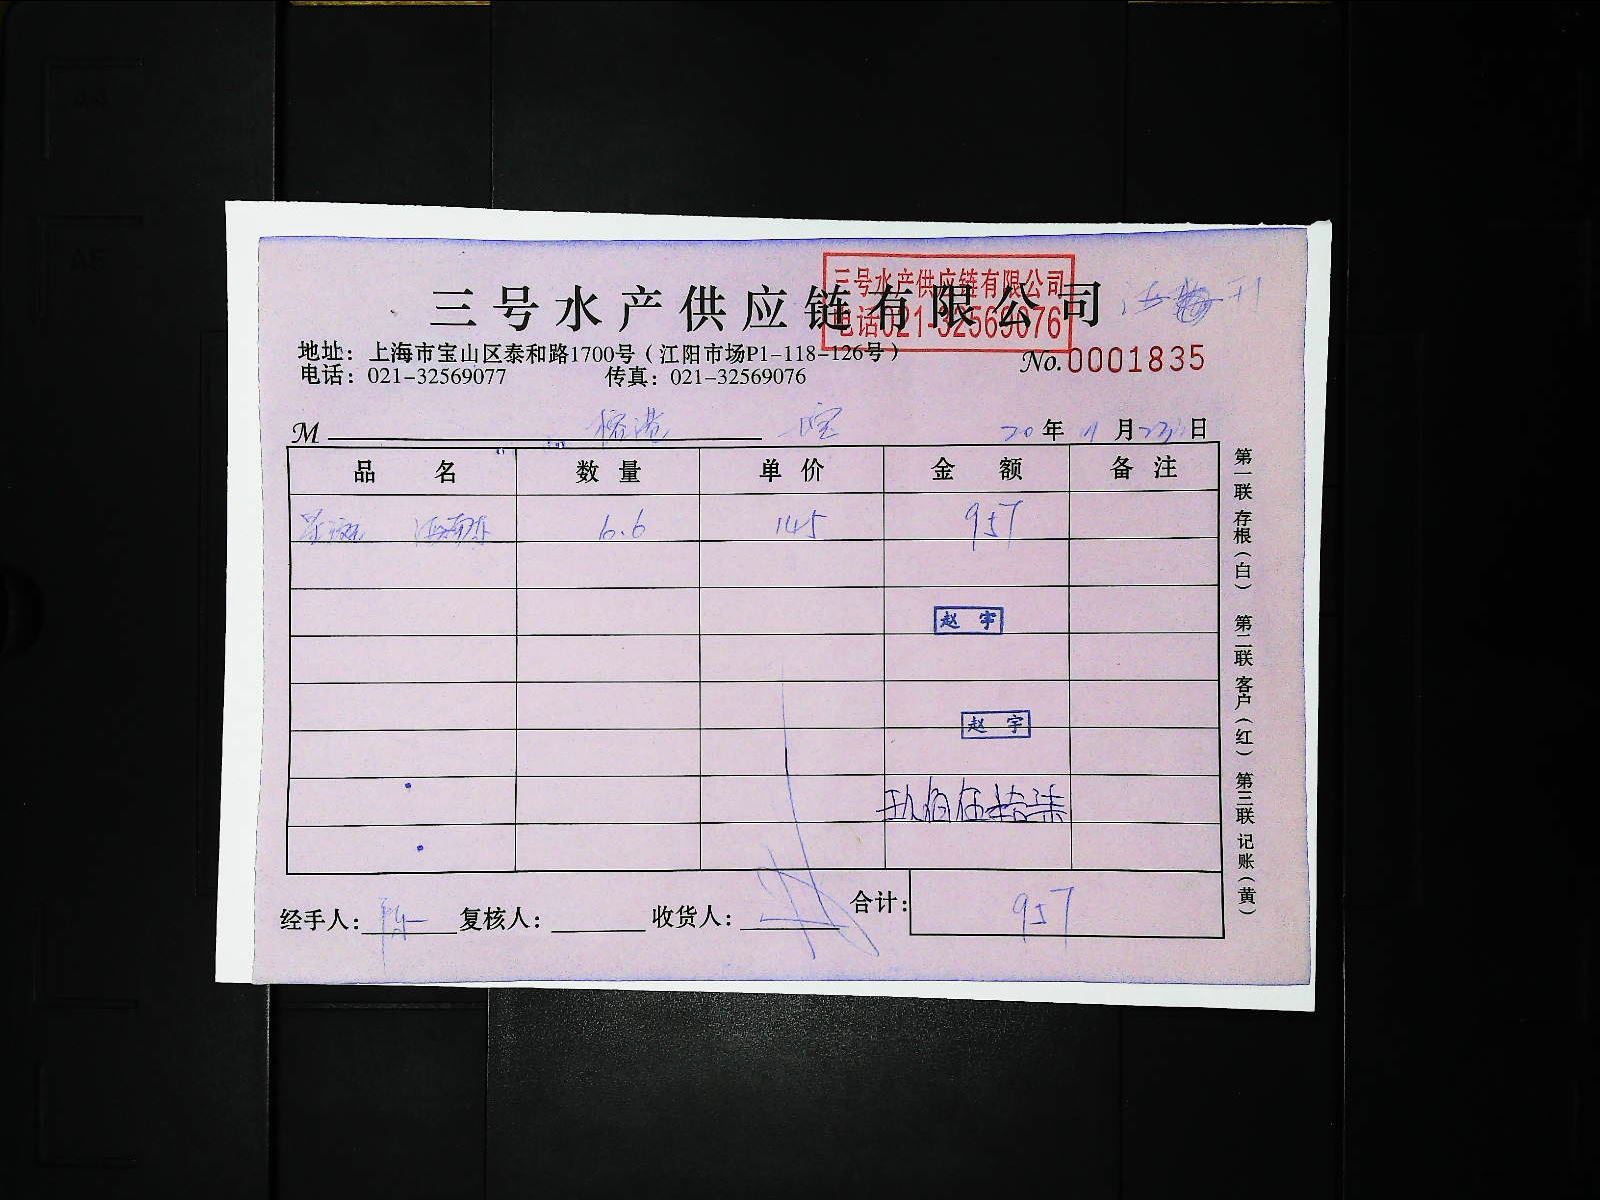 三号水产供应链有限公司
三号水产供应链有限公司
电话021-32569076
地址：上海市宝山区泰和路1700号（江阳市场P1-118-126号）
No.0001835
电话：021-32569077 传真：021-32569076
M 20年 月 日
品 名 数 量 单 价 金 额 备 注
6.6 145 957
赵 宇
赵 宇
玖佰伍拾柒
经手人： 复核人： 收货人： 合计： 957
第一联 存根（白） 第二联 客户（红） 第三联 记账（黄）